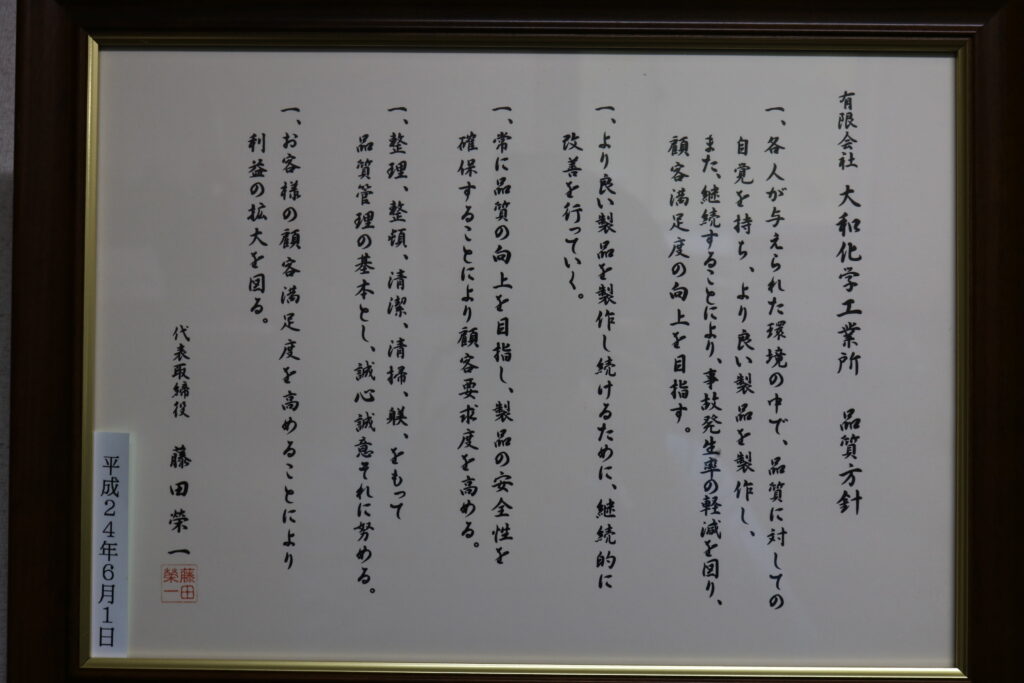 有限会社 大和化学工業所 品質方針
一、各人が与えられた環境の中で、品質に対しての
自覚を持ち、より良い製品を製作し、
また、継続することにより、事故発生率の軽減を図り、
顧客満足度の向上を目指す。
一、より良い製品を製作し続けるために、継続的に
改善を行っていく。
一、常に品質の向上を目指し、製品の安全性を
確保することにより顧客要求度を高める。
一、整理、整頓、清潔、清掃、躾、をもって
品質管理の基本とし、誠心誠意それに努める。
一、お客様の顧客満足度を高めることにより
利益の拡大を図る。
代表取締役 藤田榮一
藤田
榮一
平成24年6月1日